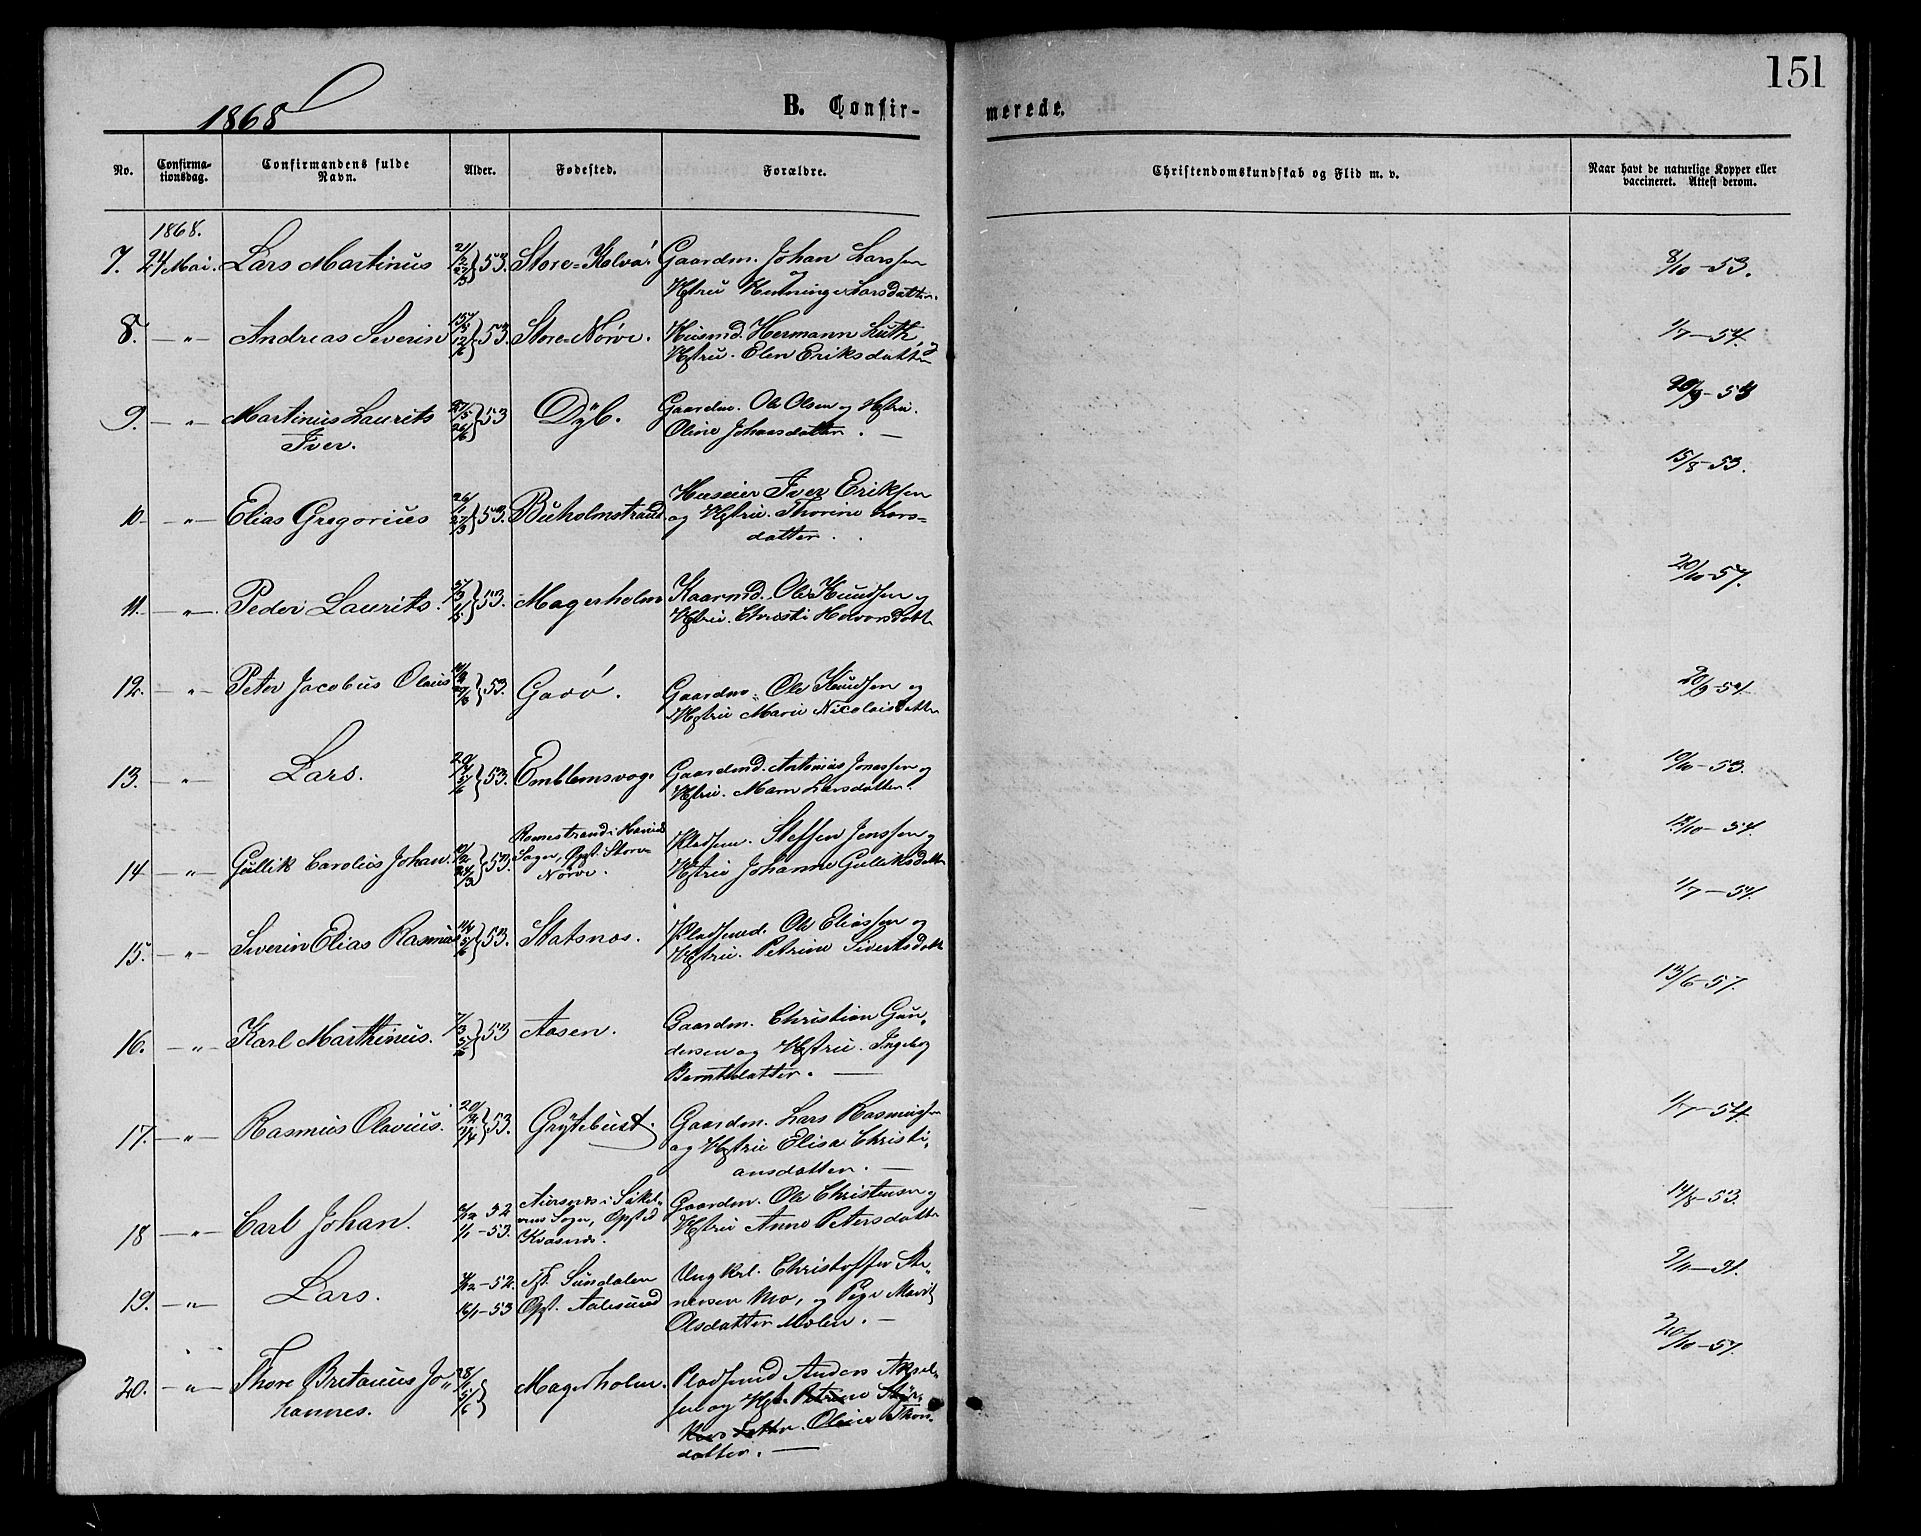 151
1868
B. Confir-
merede.
No.
Confirma-
tionsdag.
Confirmandens fulde
Navn.
Alder.
Fødested.
Forældre.
Christendomskundskab og Flid m. v.
Naar havt de naturlige Kopper eller
vaccineret. Attest derom.
1868.
7. 24 Mai. Lars Martinus 53. Store-Kalvø. Gaardm. Johan Larssen 8/10-53.
Hstru Larsdatter.
8. —„— Andreas Severin 53. Store-Nørve. Husmd. Hermann Luth, 1/7-54.
Hstru. Elen Eriksdatter
9. —„— Martinus Laurits 27/5 53 Dÿb. Gaardm. Ole Olsen og Hstru.
Iver. Oline Johansdatter. —
15/8-53.
10. —„— Elias Gregorius 53. Buholmstrand Huseier Iver Eriksen
og Hstru. Thorine Lars=
datter.
20/10-57.
11. —„— Peder Laurits. 53. Magerholm Gaardmd. Ole Knudsen og
Hstru. Christi Halvorsdatt
12. —„— Peter Jacobus Olaus 53. Gaaø. Gaardm. Ole Knudsen og 20/9-54.
Hstru Marie Nicolaisdatter
13. —„— Lars. 53. Emblemsvog. Gaardmd. Antonius Jonassen og 10/10-53.
Hstru. Maren Larsdatter.
14 —„— Gullik Carolus Johan. 53. Romestrand i Havnes
Sogn, Opst. Store-
Nørve.
Pladsm. Steffen Jenssen og 12/10-54.
Hstru Johanne Gulliksdatter
15. —„— Severin Elias Rasmus 53. Slatsnes. Pladsmd. Ole Eliassen og 1/7-54.
Hstru. Petrine Sivertsdatt
13/6-57.
16. —„— Karl Marthinus. 53 Aasen. Gaardm. Christian Gun„
dersen og Hstru. Ingebog
Berntsdatter. —
17. —„— Rasmus Olavius. 53. Grÿtebust. Gaardm. Lars Rasmussen 1/7-54.
og Hstru Elisa Christi„
ansdatter. —
18 —„— Carl Johan. 52 1/1-53. Sogn, Opsted
Kvasnes.
Gaardm. Ole Christensen og 14/8-53.
Hstru Anne Petersdatter
19. —„— Lars. 52. 16/1-53 Sundalen
Opst. Aalesund
Ungkrl. Christoffer Ste„
nersen Mo, og Pige Marit
Olsdatter Molen. —
20/10-57.
20. —„— Thore Bretanus Jo„
hannes.
Magerholm. Pladsmd Anders Aksel„
sen og Hst. Petrine
Oline Thors
datter. —